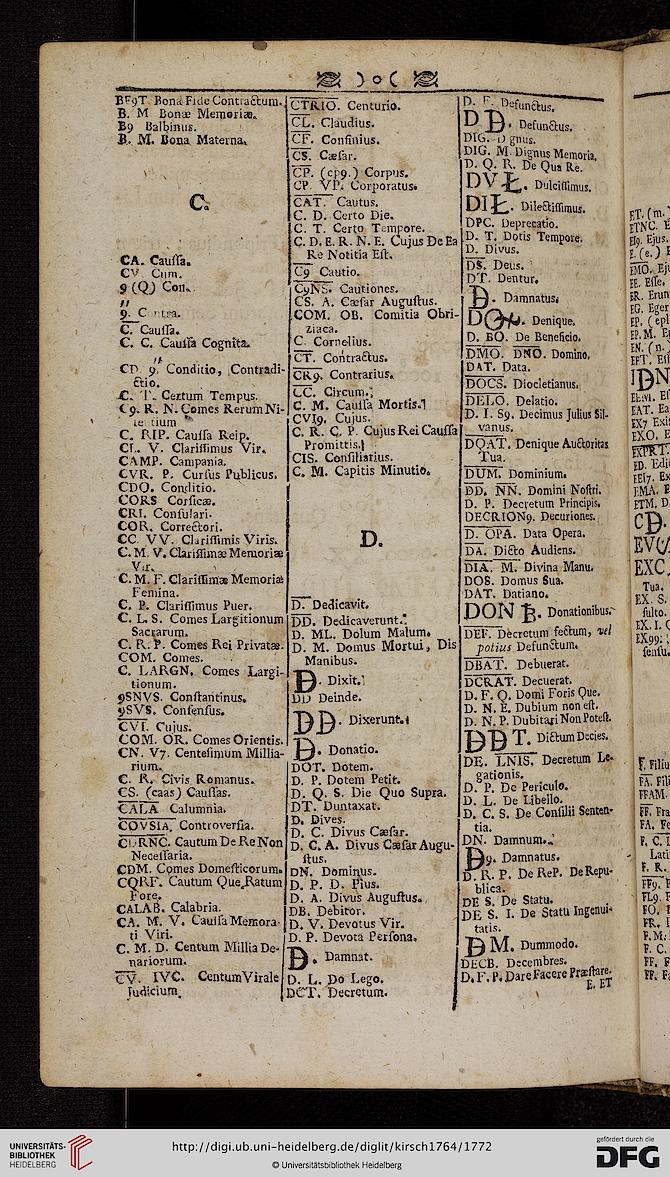 ) o (
BF9T Bona Fide Contractum.
B. M Bonæ Memoriæ.
B9 Balbinus.
B. M. Bona Materna.
C.
CA. Cauſſa.
CV. Cum.
9 (Q) Con.
9. Contra.
C. Cauſſa.
C. C. Cauſſa Cognita.
CD 9. Conditio, Contradi-
ctio.
C. T. Certum Tempus.
C9. R. N. Comes Rerum Ni-
tentium
C. RIP. Cauſſa Reip.
CL. V. Clariſſimus Vir.
CAMP. Campania.
CVR. P. Curſus Publicus.
CDO. Conditio.
CORS Corſicæ.
CRI. Conſulari.
COR. Correctori.
CC VV. Clariſſimis Viris.
C. M. V. Clariſſimæ Memoriæ
Vir.
C. M. F. Clariſſimæ Memoriæ
Femina.
C. P. Clariſſimus Puer.
C. L. S. Comes Largitionum
Sacrarum.
C. R. P. Comes Rei Privatæ.
COM. Comes.
C. LARGN. Comes Largi-
tionum.
9SNVS. Conſtantinus.
9SVS. Conſenſus.
CVI. Cujus.
COM. OR. Comes Orientis.
CN. V7. Centeſimum Millia-
rium.
C. R. Civis Romanus.
CS. (caas) Cauſſas.
CALA Calumnia.
COVSIA. Controverſia.
CDRNC. Cautum De Re Non
Neceſſaria.
CDM. Comes Domeſticorum.
CQRF. Cautum Que Ratum
Fore.
CALAB. Calabria.
CA. M. V. Cauſſa Memora-
ti Viri.
C. M. D. Centum Millia De-
nariorum.
CV. IVC. Centum Virale
Judicium.
CTRIO. Centurio.
CL. Claudius.
CF. Confinius.
CS. Cæſar.
CP. (cp9.) Corpus.
CP. VP. Corporatus.
CAT. Cautus.
C. D. Certo Die.
C. T. Certo Tempore.
C. D. E. R. N. E. Cujus De Ea
Re Notitia Eſt.
C9 Cautio.
C9NS. Cautiones.
CS. A. Cæſar Auguſtus.
COM. OB. Comitia Obri-
ziaca.
C. Cornelius.
CT. Contractus.
CR9. Contrarius.
CC. Circum.
C. M. Cauſſa Mortis.
CVI9. Cujus.
C. R. C. P. Cujus Rei Cauſſa
Promittis.
CIS. Conſiliarius.
C. M. Capitis Minutio.
D.
D. Dedicavit.
DD. Dedicaverunt.
D. ML. Dolum Malum.
D. M. Domus Mortui, Dis
Manibus.
D. Dixit.
DD Deinde.
DD. Dixerunt.
D. Donatio.
DOT. Dotem.
D. P. Dotem Petit.
D. Q. S. Die Quo Supra.
DT. Duntaxat.
D. Dives.
D. C. Divus Cæſar.
D. C. A. Divus Cæſar Augu-
ſtus.
DN. Dominus.
D. P. D. Pius.
D. A. Divus Auguſtus.
DB. Debitor.
D. V. Devotus Vir.
D. P. Devota Perſona.
D. Damnat.
D. L. Do Lego.
DCT. Decretum.
D. F. Defunctus.
DD. Defunctus.
DIG. Dignus.
DIG. M. Dignus Memoria.
D. Q. R. De Qua Re.
DVŁ. Dulciſſimus.
DIŁ. Dilectiſſimus.
DPC. Deprecatio.
D. T. Dotis Tempore.
D. Divus.
DS. Deus.
DT. Dentur.
D. Damnatus.
Denique.
D. BO. De Beneficio.
DMO. DNO. Domino.
DAT. Data.
DOCS. Diocletianus.
DELO. Delatio.
D. I. S9. Decimus Julius Sil-
vanus.
DQAT. Denique Auctoritas
Tua.
DUM. Dominium.
DD. NN. Domini Noſtri.
D. P. Decretum Principis.
DECRION9. Decuriones.
D. OPA. Data Opera.
DA. Dicto Audiens.
DIA. M. Divina Manu.
DOS. Domus Sua.
DAT. Datiano.
DON B. Donationibus.
DEF. Decretum fectum, vel
potius Defunctum.
DBAT. Debuerat.
DCRAT. Decuerat.
D. F. Q. Domi Foris Que.
D. N. E. Dubium non eſt.
D. N. P. Dubitari Non Poteſt.
DDT. Dictum Decies.
DE. LNIS. Decretum Le-
gationis.
D. P. De Periculo.
D. L. De Libello.
D. C. S. De Conſilii Senten-
tia.
DN. Damnum.
D9. Damnatus.
D. R. P. De ReP. De Repu-
blica.
DE S. De Statu.
DE S. I. De Statu Ingenui-
tatis.
DM. Dummodo.
DECB. Decembres.
D. F. P. Dare Facere Præſtare.
E. ET
ET. (m.
ETNC. E
EI9. Ejus.
E. (e.) E
EMO. Ej
EE. Eſſe.
ER. Erun
EG. Eger
EP. (epl
EP. M. E
EN. (n.
EFT. Eſſ
IDN
EAT. Ea
EX7 Exi
EXO. E
EXPRT.
ED. Edi
EEI7. Ex
EMA. E
ETM. D
CD.
EXC
Tua.
EX. S.
ſulto.
EX. I. C
EX99:
ſenſu.
F. Filiu
FA. Fili
FFAM.
FF. Fra
FA. Fe
F. C. I
Lati
F. R.
FF9. F
FL9. F
FO. I
FR. I
F. M.
F. C.
FF. F
FF. F
UNIVERSITÄTS-
BIBLIOTHEK
HEIDELBERG
http://digi.ub.uni-heidelberg.de/diglit/kirsch1764/1772
© Universitätsbibliothek Heidelberg
gefördert durch die
DFG